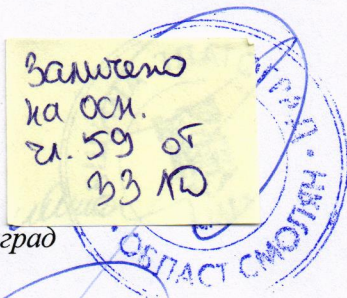 Заличено
на осн.
чл. 59 от
ЗЗЛД
град
• ОБЛАСТ СМОЛЯН •